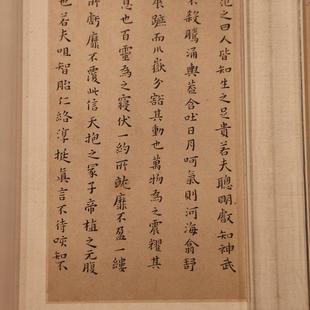 之曰人皆知生之足貴若夫聰明叡知神武
不殺騰涌輿蓋含吐日月呵氣則河海翕舒
蹠而川嶽分豁其動也萬物為之震耀其
息也百靈為之寢伏一約所靡不盈一縷
所虧靡不覆此信天抱之冢子帝植之元腹
也若夫咀智胎仁絡淳摭真言不待知不